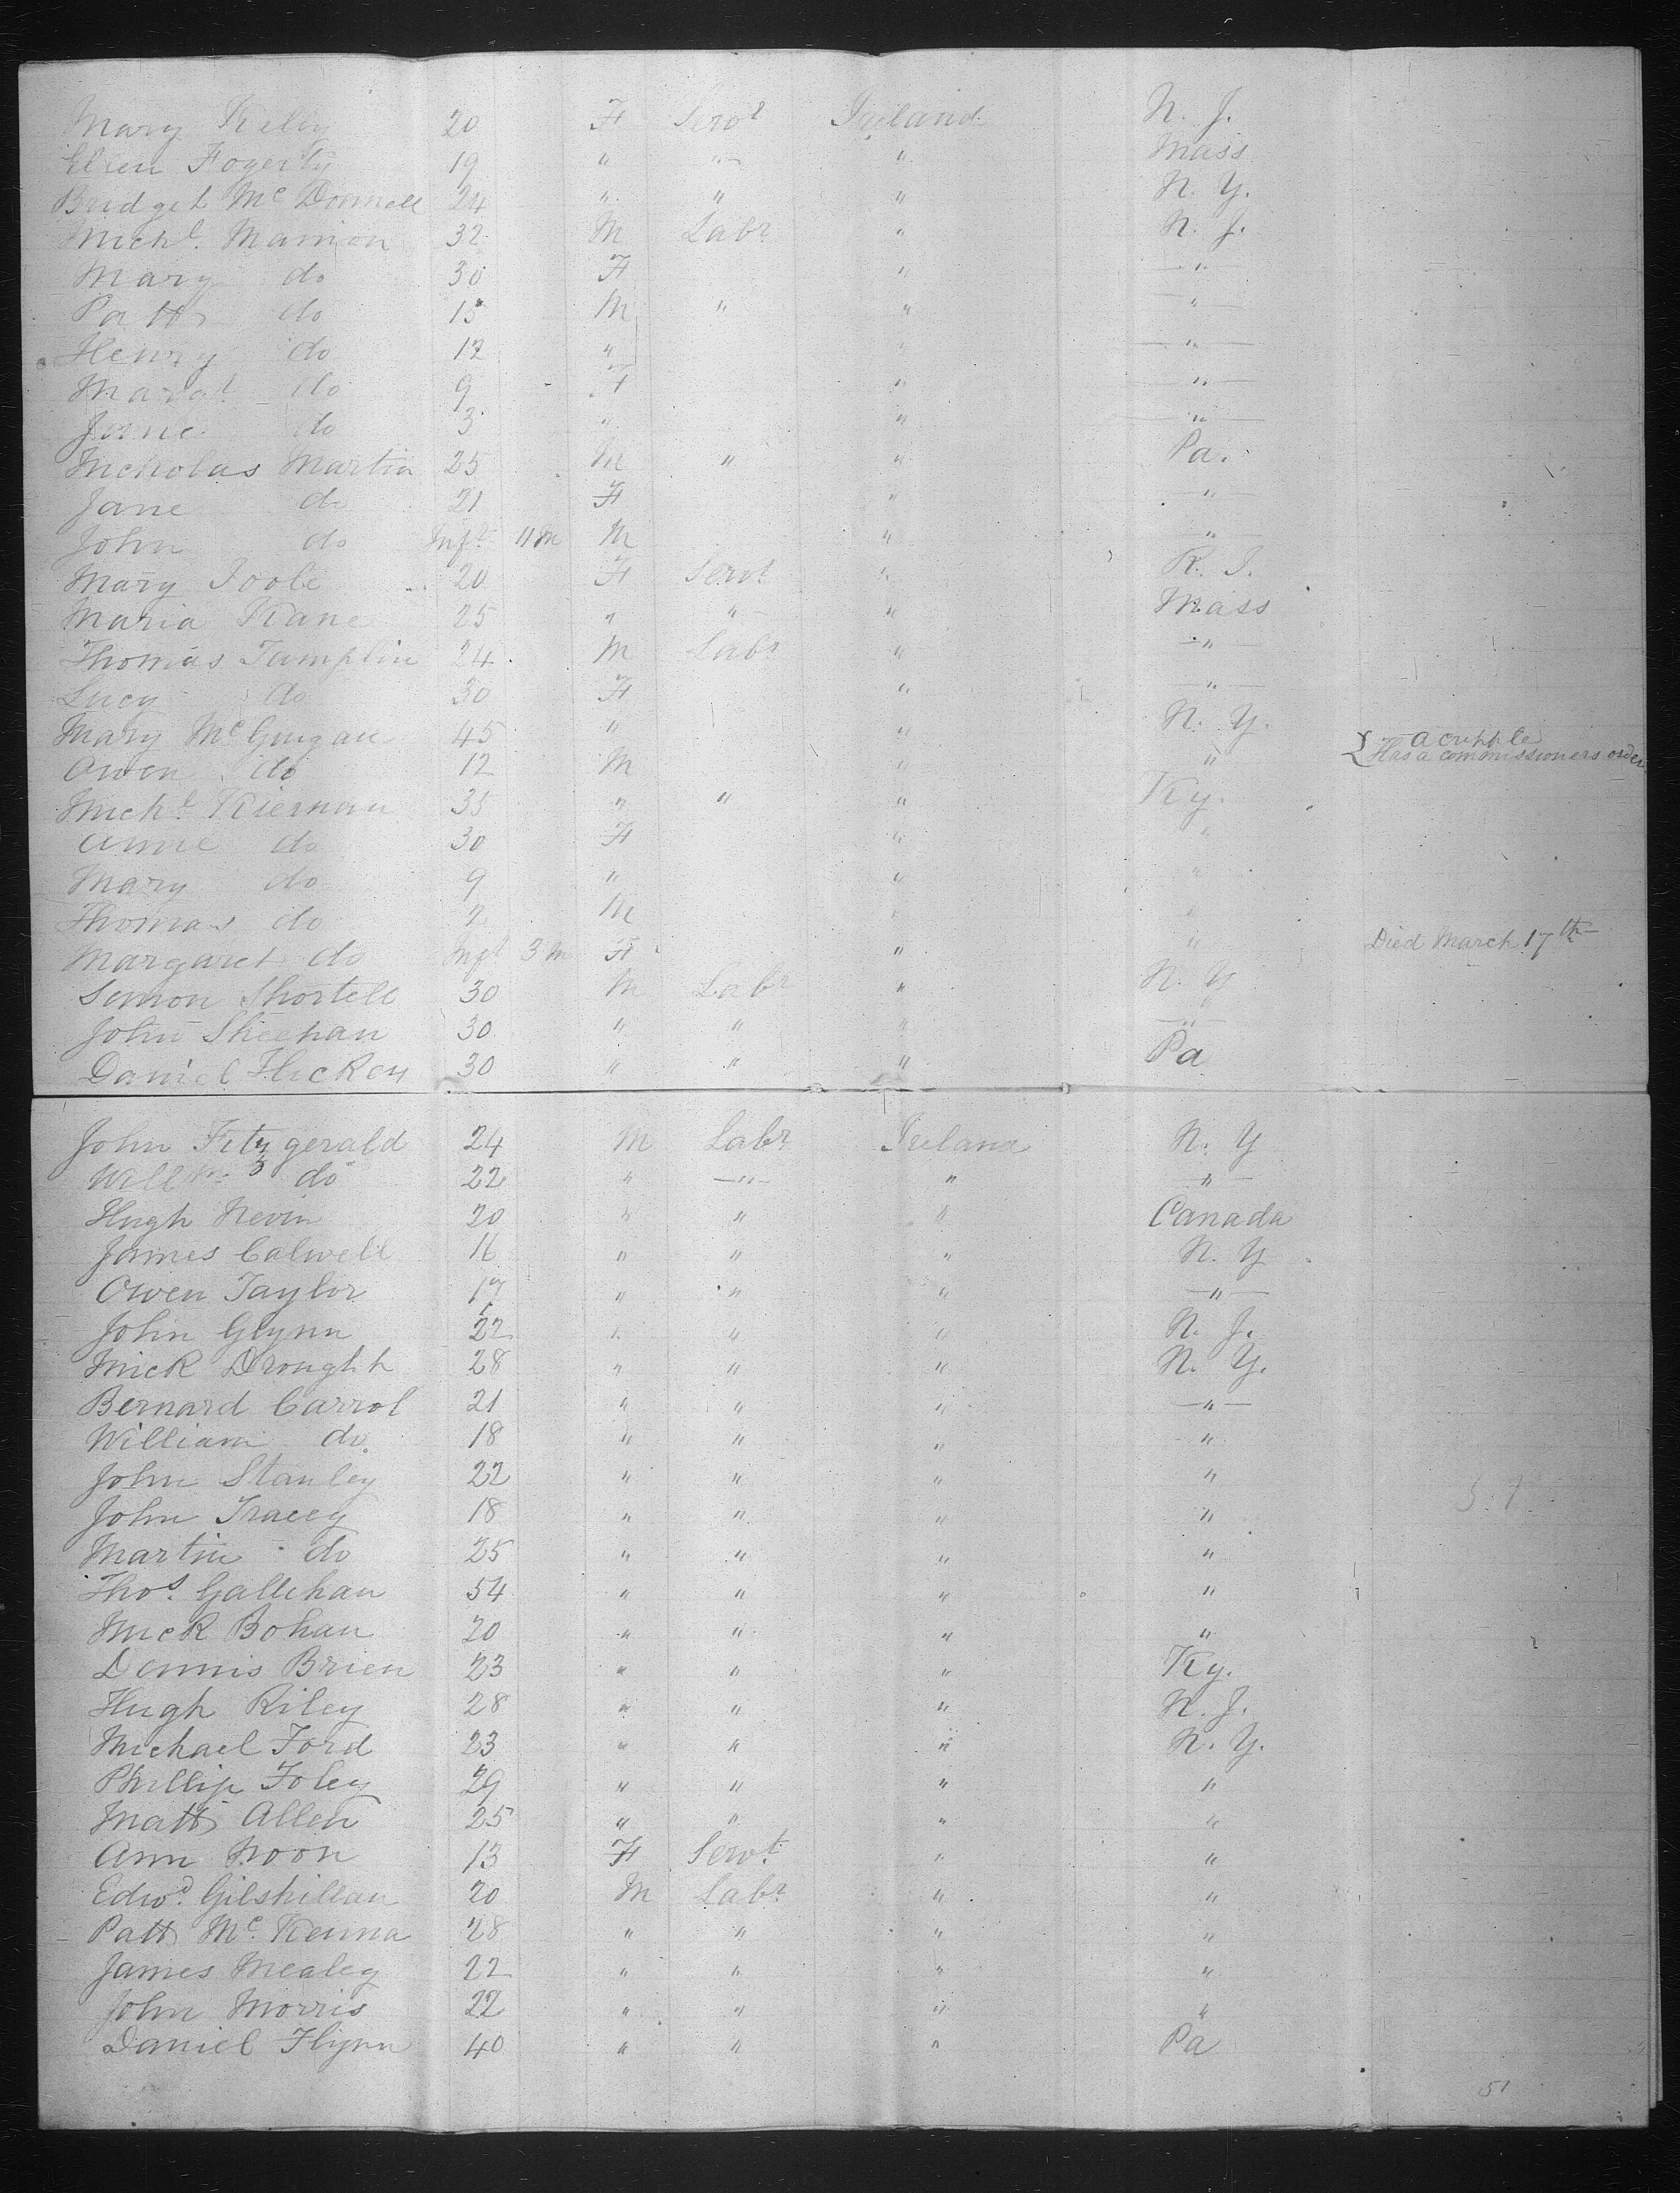 Mary Kelly 20 F Servt Ireland N. J.
Ellen Fogerty 19 " " " Mass
Bridget Mc Donnell 24 " " " N. Y.
Michl. Mannion 32 M Labr " N. J.
Mary do 30 F " "
Patt do 15 M " " "
Henry do 12 " " "
Margt do 9 F " "
Jane do 3 " " "
Nicholas Martin 25 M " " Pa.
Jane do 21 F " "
John do Inft 11 M M " "
Mary Toole 20 F Servt " R. I.
Maria Kane 25 " " " Mass
Thomas Tamplin 24 M Labr " "
Lucy do 30 F " "
Mary Mc Guigan 45 " " N. Y. a cripple
Owen do 12 M " " Has a commissioners order
Michl Kiernan 35 " " " Ky.
Anne do 30 F " "
Mary do 9 " " "
Thomas do 2 M " "
Margaret do Inft 3 M F " " Died March 17th
Simon Shortell 30 M Labr " N. Y
John Sheehan 30 " " " "
Daniel Hickey 30 " " " Pa
John Fitzgerald 24 M Labr Ireland N. Y
Willm. do 22 " " " "
Hugh Nevin 20 " " " Canada
James Calwell 16 " " " N. Y
Owen Taylor 17 " " " "
John Glynn 22 " " " N. J.
Mick Drought 28 " " " N. Y.
Bernard Carrol 21 " " " "
William do. 18 " " " "
John Stanley 22 " " " "
John Tracey 18 " " " "
Martin do 25 " " " "
Thos. Gallehan 54 " " " "
Mick Bohan 20 " " " "
Dennis Brien 23 " " " Ky.
Hugh Riley 28 " " " N. J.
Michael Ford 23 " " " N. Y.
Phillip Foley 29 " " " "
Matt Allen 25 " " " "
Ann Noon 13 F Servt " "
Edwd. Gilshillan 20 M Labr " "
Patt Mc. Kenna 28 " " " "
James Mealey 22 " " " "
John Morris 22 " " " "
Daniel Flynn 40 " " " Pa
51